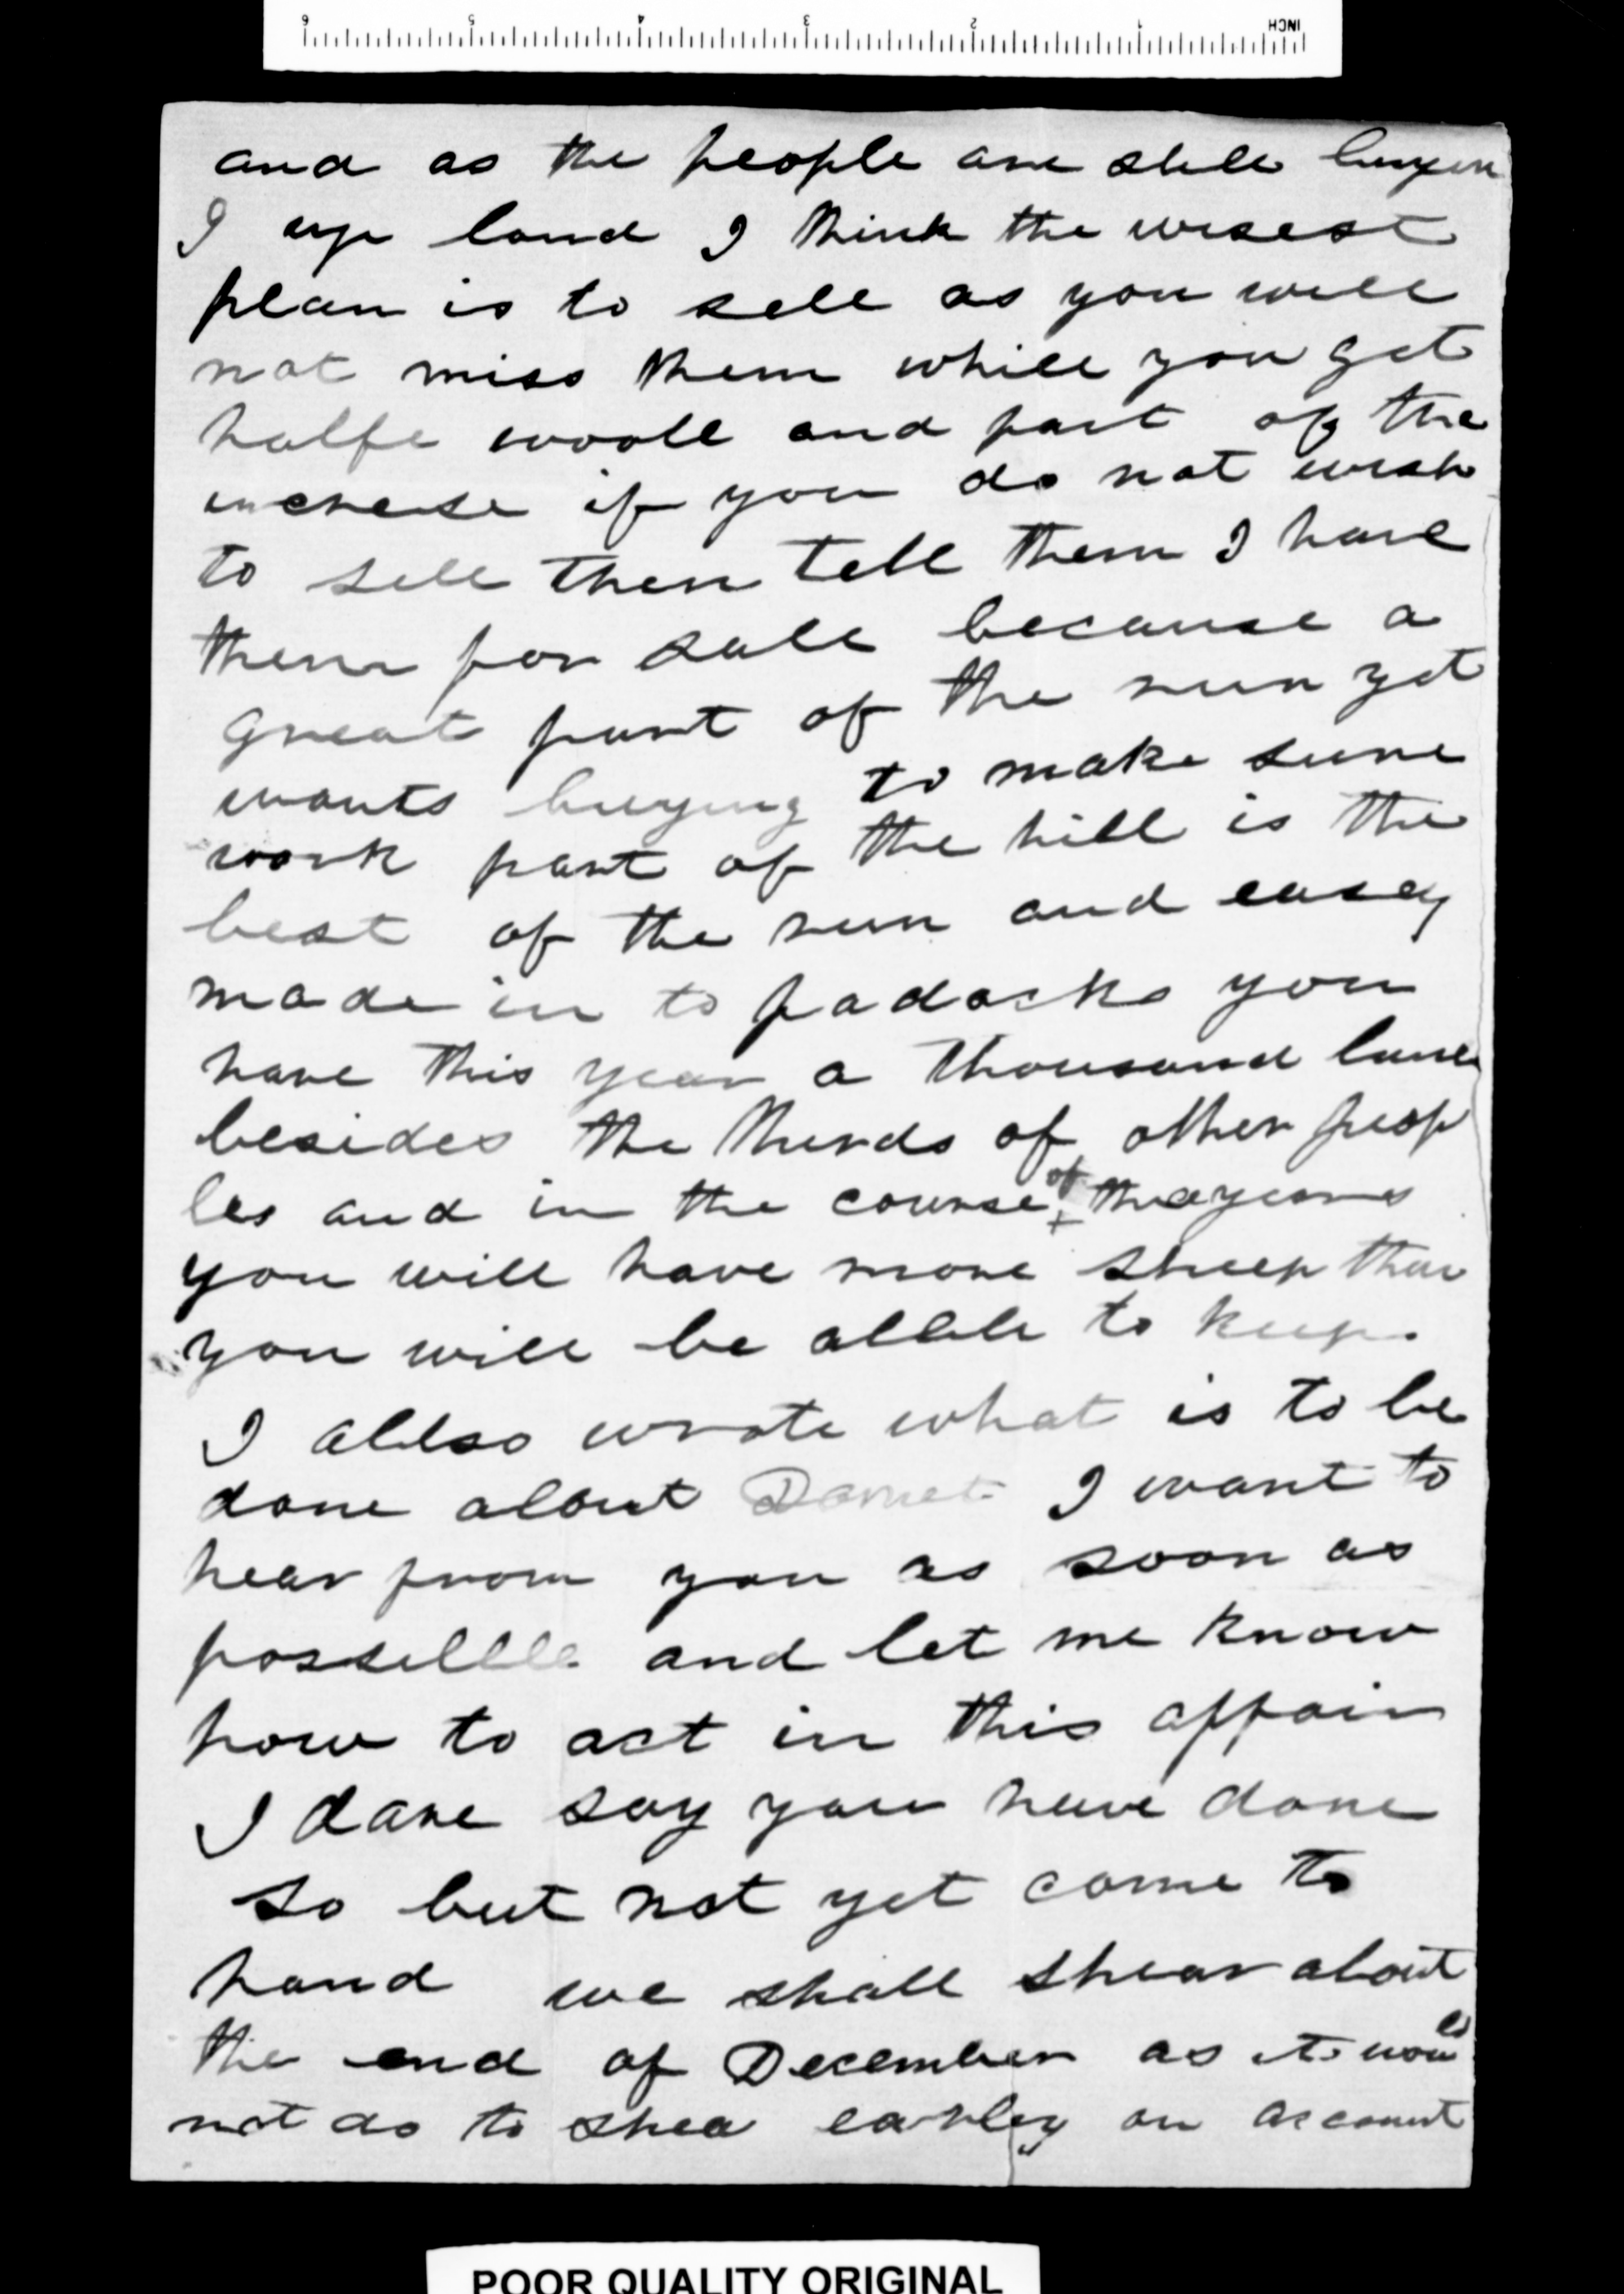 6 5 4 3 2 1 INCH
and as the people are still buyen
I up land I think the wisest
plan is to sell as you will
not miss them while you get
halfe wooll and part of the
increse if you do not wish
to sell then tell them I have
them for sale because a
great part of the run yet
wants buying to make sure
work part of the hill is the
best of the run and easey
made in to padocks you
have this year a thousand
besides the thirds of other peop
les and in the course of the years
you will have more sheep than
you will be abble to keep.
I allso wrote what is to be
done about Domet I want to
hear from you as soon as
possibble and let me know
how to act in this affair
I dare say you have done
so but not yet come to
hand we shall shear about
the end of December as it would
not do to shea earley on account
POOR QUALITY ORIGINAL